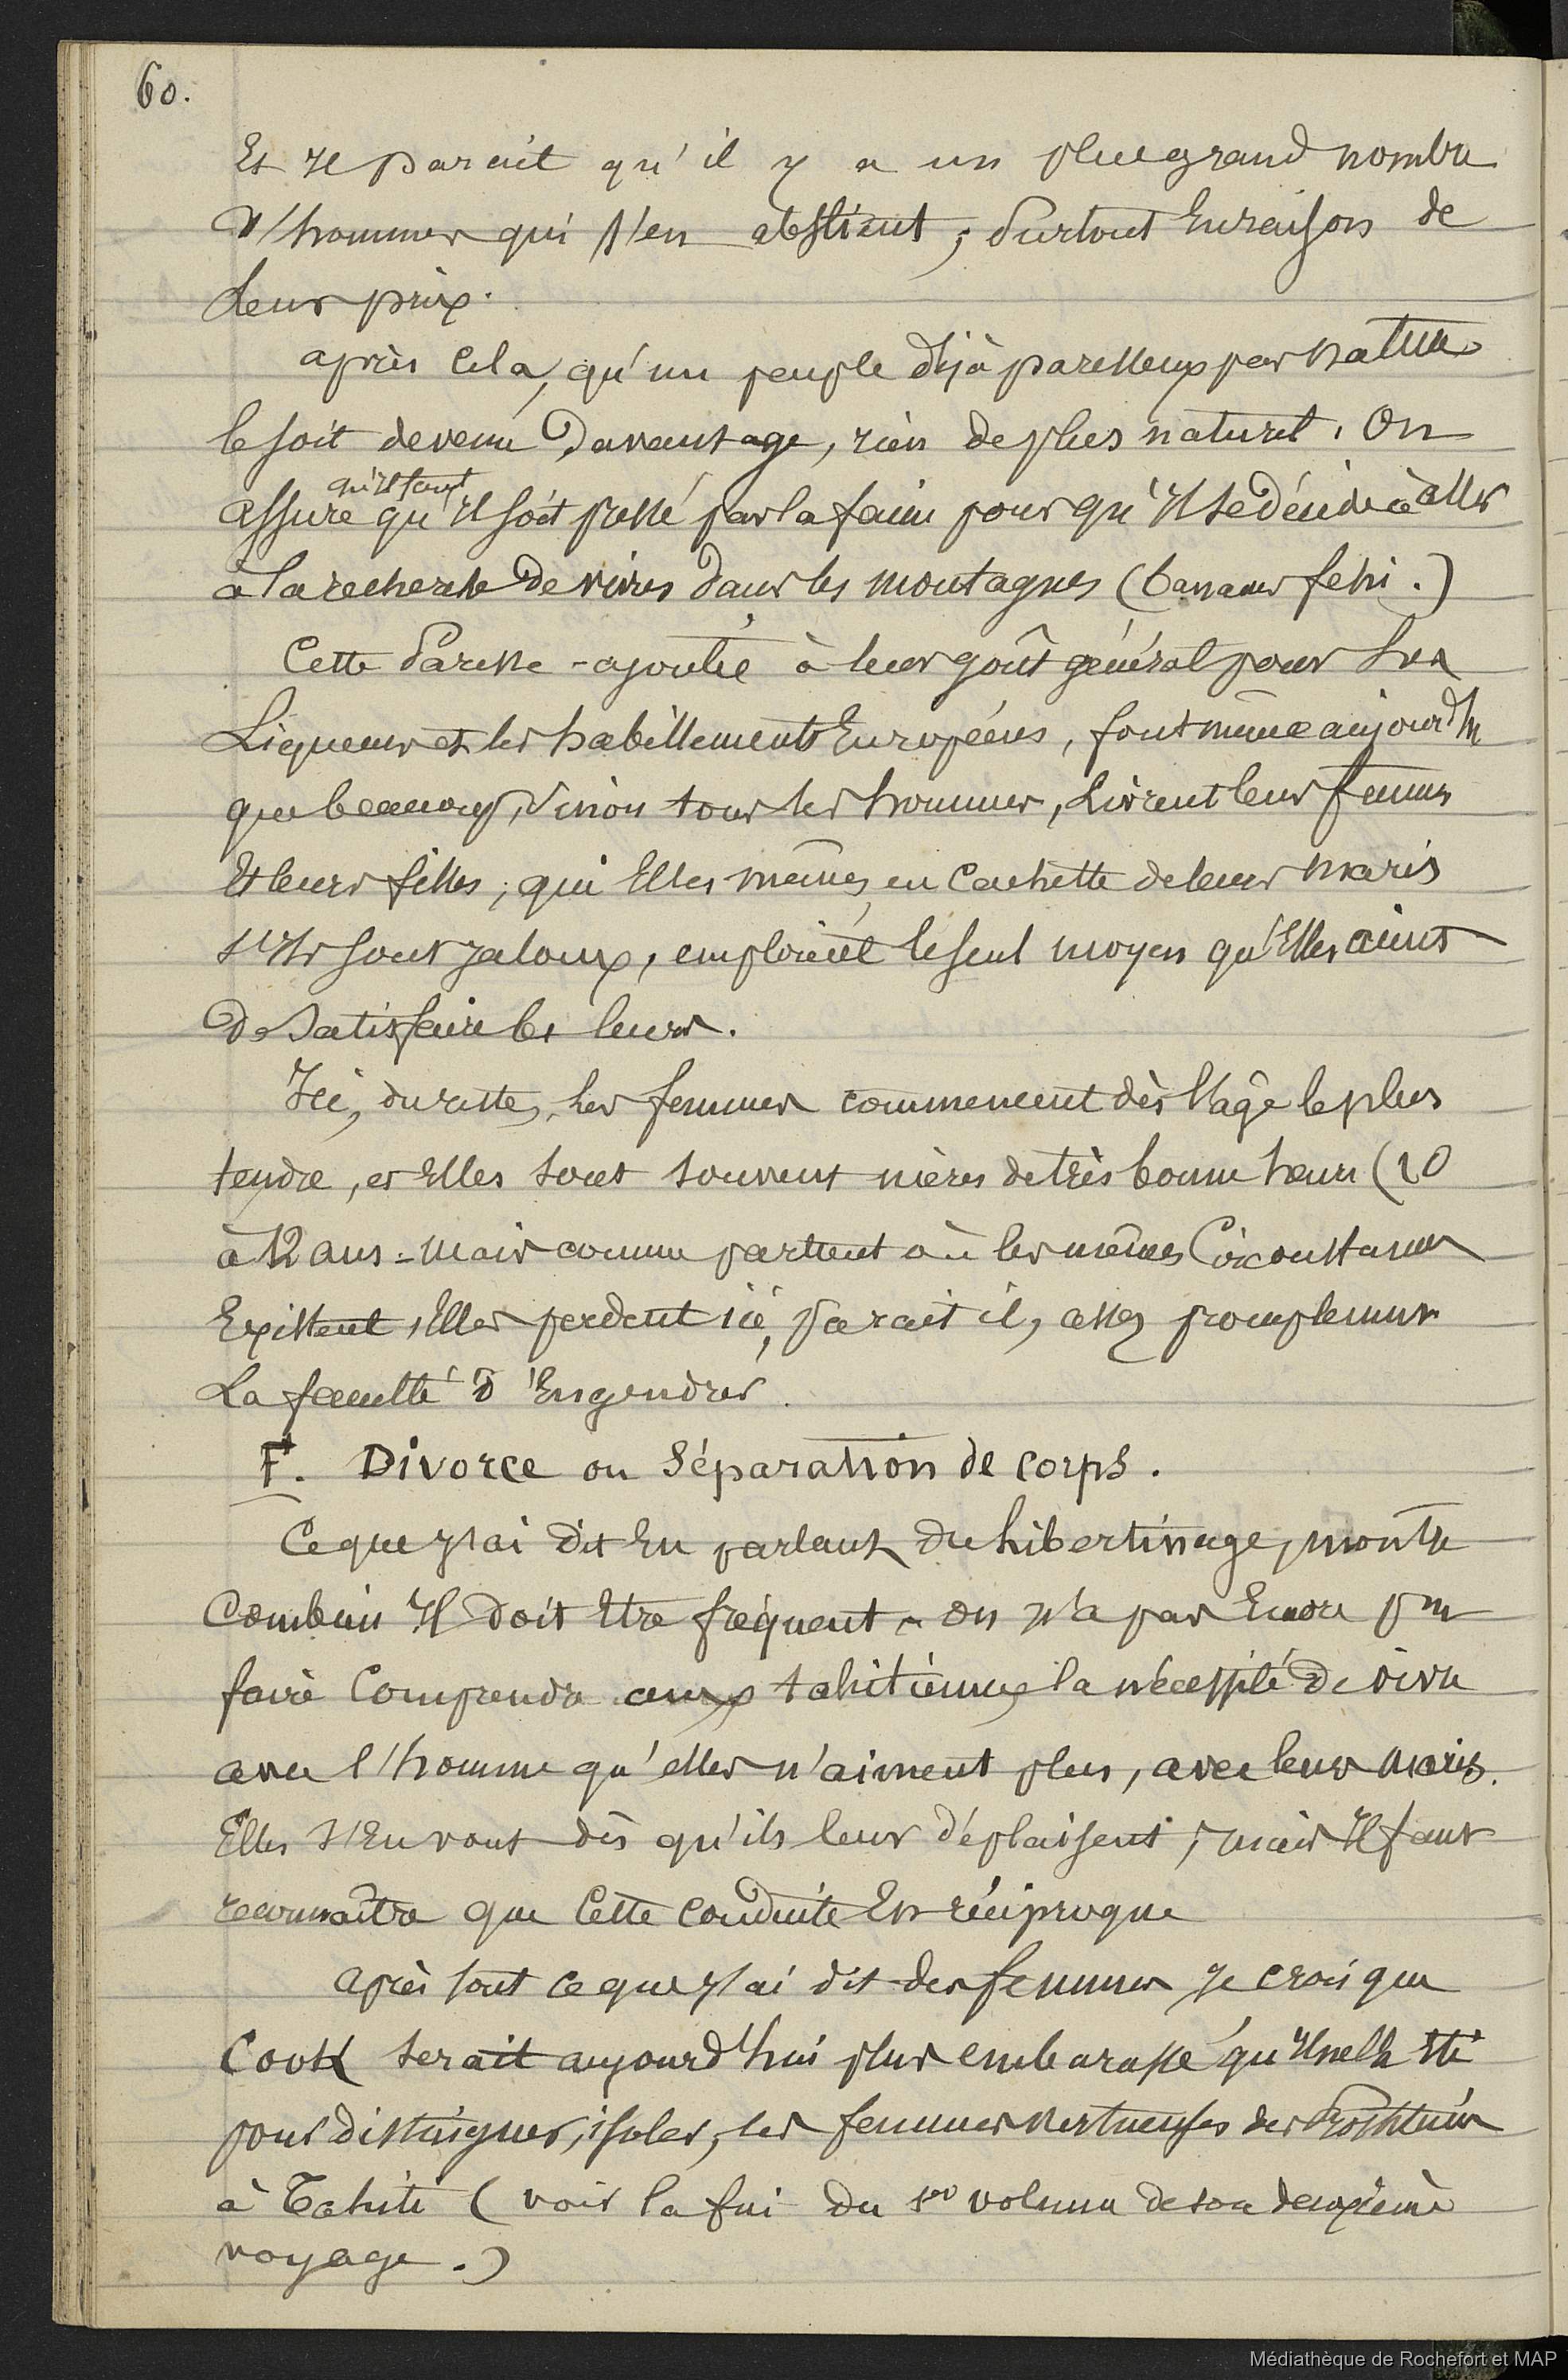 60.
Et Il parait qu'il y a un plus grand nombre
d'hommes qui s'en abstient, Surtout En raison de
Leur prix.
après Cela, qu'un peuple déjà paresseux par nature
le soit devenu Davantage, rien de plus naturel. On
qu'il faut
assure qu'Il soit pressé par la faim pour qu'Il se décide à aller
à la recherche De vivres dans les montagnes (bananes fehi.)
Cette Paresse - ajoutée à leur goût général pour Les
Liqueurs et les habillements Européens, font même aujourd'h
que beaucoup, Sinon tous les hommes, Livrent leurs femmes
Et leurs filles, qui Elles mêmes, en Cachette de leurs maris
s'Ils sont jaloux, emploient le seul moyen qu'Elles aient
De Satisfaire les leurs.
Ici, du reste, Les femmes commencent dès l'âge le plus
tendre, et Elles sont souvent mères de très bonne heure (10
à 12 ans - Mais comme partout où les mêmes Circonstances
Existent, Elles perdent ici, parait il, assez promptement
La faculté d'Engendrer.
F. Divorce ou Séparation de corps.
Ce que J'ai dit En parlant Du Libertinage, montre
Combien Il doit Etre fréquent - on n'a pas Encore pu
faire Comprendre aux tahitiennes la nécessité De vivre
avec l'homme qu'elles n'aiment plus, avec leurs maris.
Elles s'En vont dès qu'ils leur déplaisent, mais Il faut
reconnaître que Cette conduite Est réciproque
après tout ce que J'ai dit des femmes Je crois que
Cook serait aujourd'hui plus embarassé qu'Il ne l'a Eté
pour distinguer, isoler, les femmes vertueuses des Prostituées
à Tahiti (voir la fin du 1er volume de son deuxième
voyage.)
Médiathèque de Rochefort et MAP